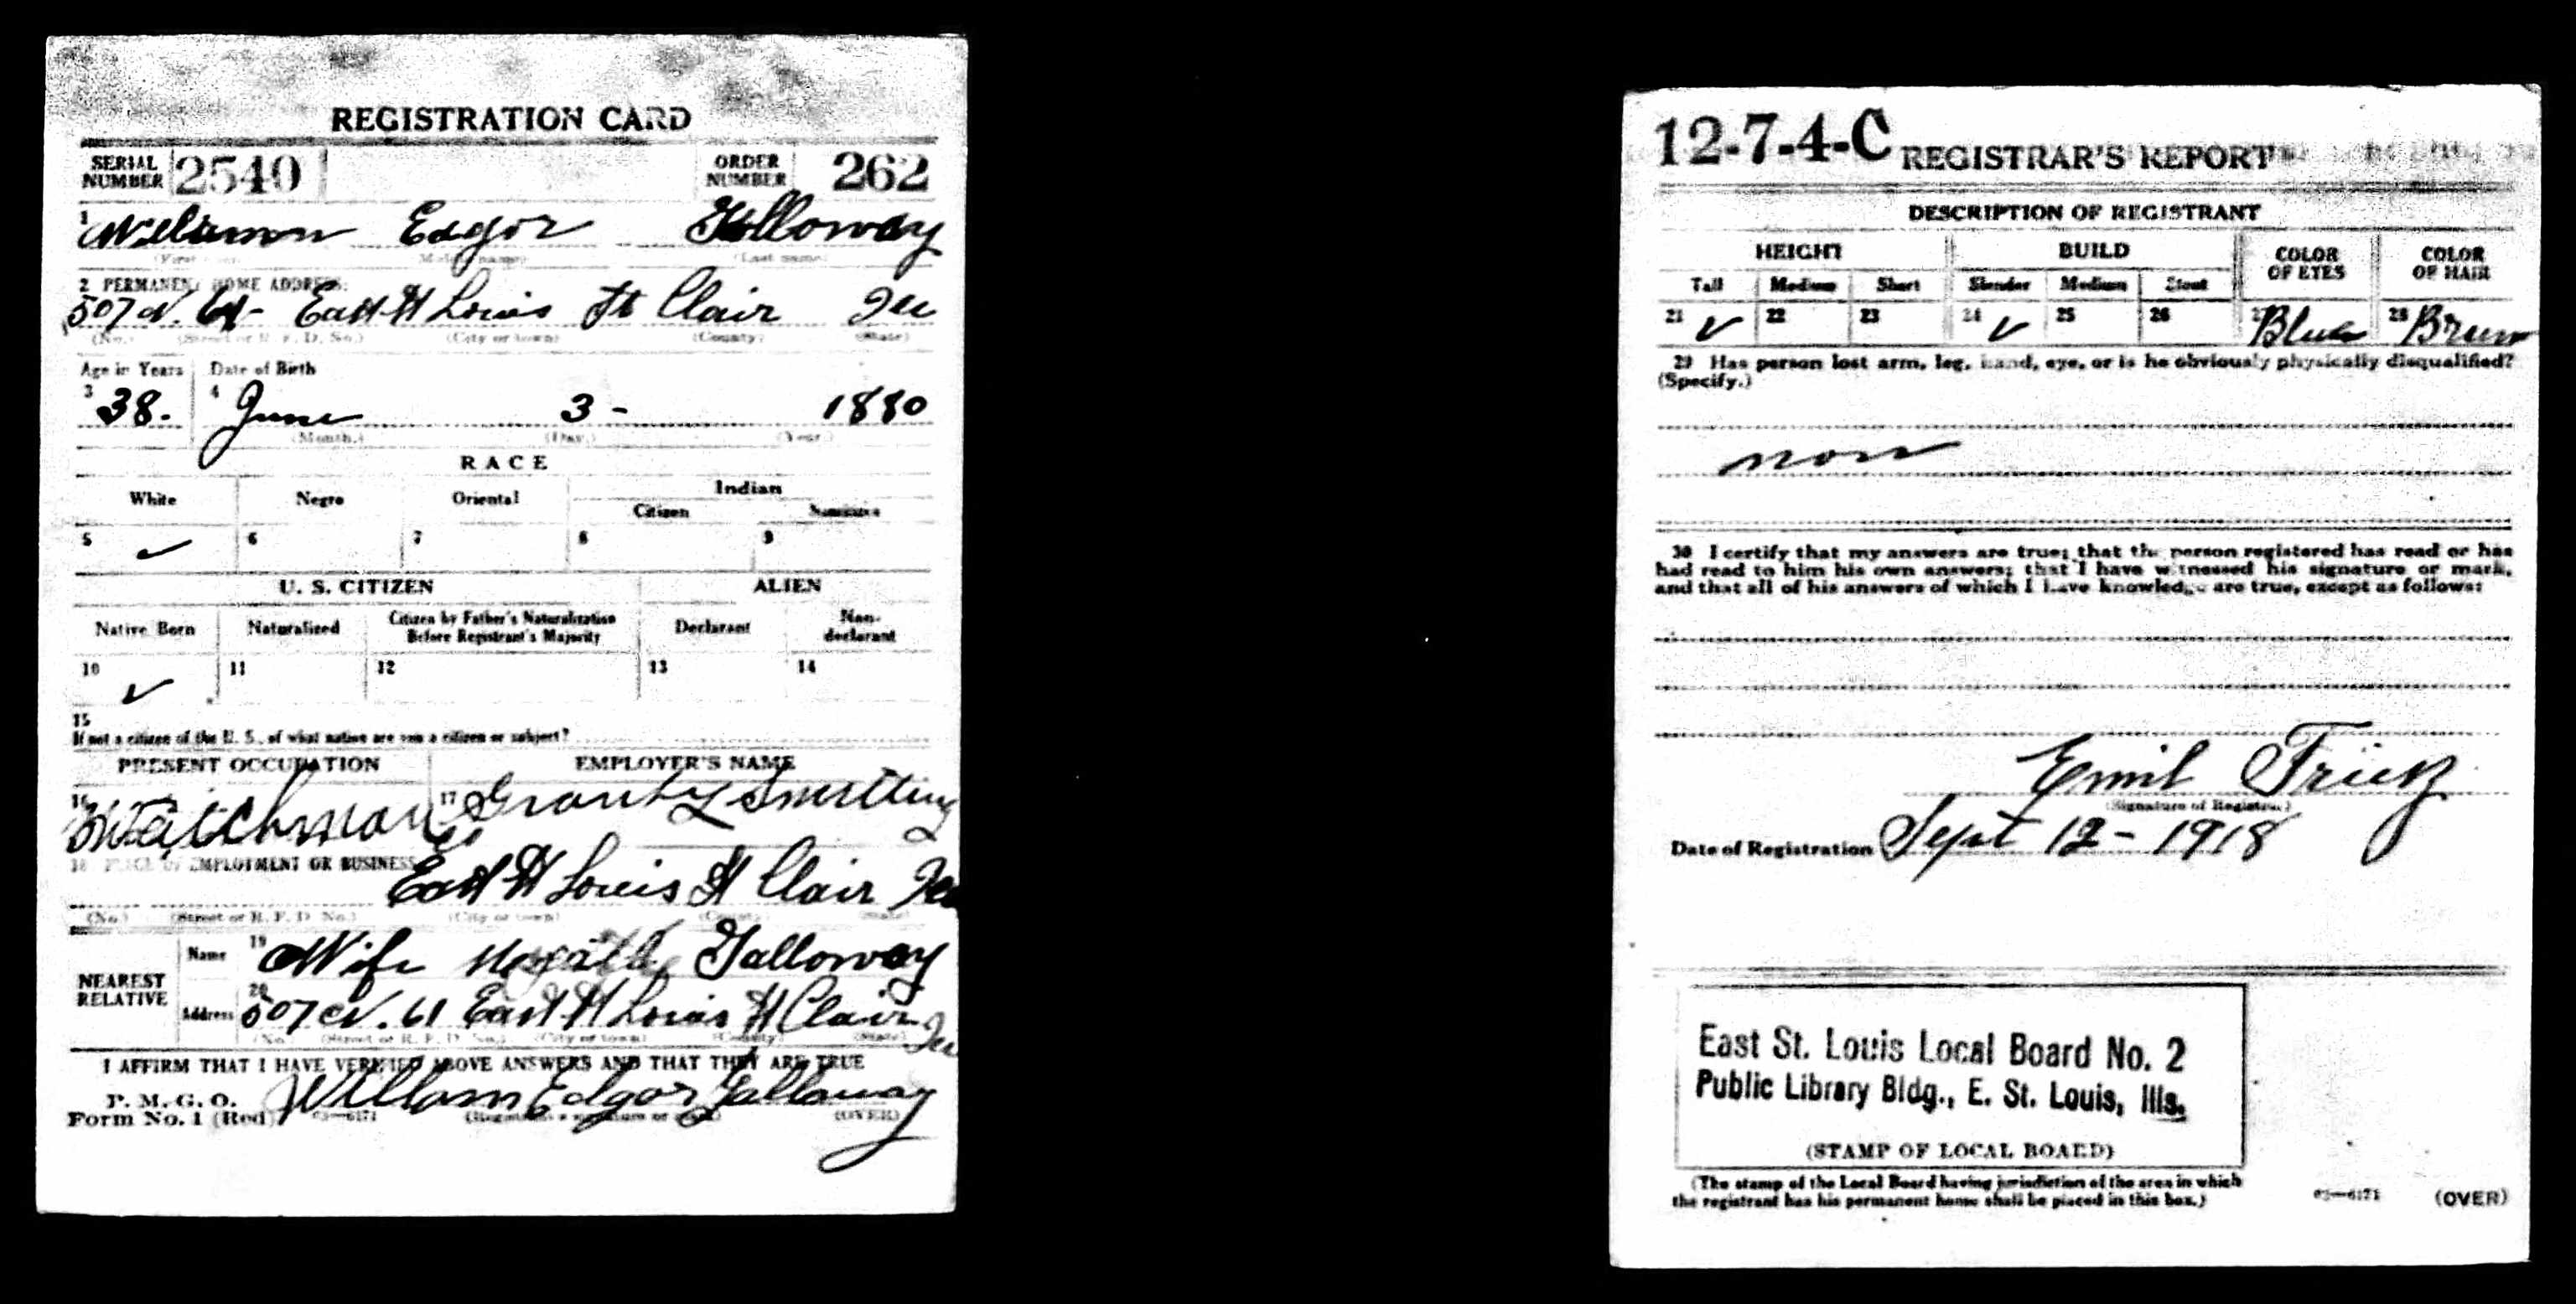 REGISTRATION CARD
SERIAL NUMBER 2540 ORDER NUMBER 262
1 William Edgar Galloway
(Middle name) (Last name)
2 PERMANENT HOME ADDRESS:
507 N. 61 - East St Louis St Clair Ill
(No.) (Street or R. F. D. No.) (City or town) (County) (State)
Age in Years Date of Birth
3 38. 4 June 3 - 1880
(Month.) (Day.) (Year.)
RACE
White Negro Oriental Indian
Citizen Noncitizen
5 ✓ 6 7 8 9
U. S. CITIZEN ALIEN
Native Born Naturalized Citizen by Father's Naturalization Before Registrant's Majority Declarant Non-declarant
10 ✓ 11 12 13 14
15
If not a citizen of the U. S., of what nation are you a citizen or subject?
PRESENT OCCUPATION EMPLOYER'S NAME
16 Watchman 17 Granby Smelting Co
18 PLACE OF EMPLOYMENT OR BUSINESS
East St Louis St Clair Ill
(No.) (Street or R. F. D. No.) (City or town) (County) (State)
NEAREST RELATIVE
Name 19 Wife Galloway
Address 20 507 N. 61 East St Louis St Clair Ill
(No.) (Street or R. F. D. No.) (City or town) (County) (State)
I AFFIRM THAT I HAVE VERIFIED ABOVE ANSWERS AND THAT THEY ARE TRUE
P. M. G. O.
Form No. 1 (Red) 03—6171 William Edgar Galloway (OVER)
(Registrant's signature or mark)
12-7-4-C REGISTRAR'S REPORT
DESCRIPTION OF REGISTRANT
HEIGHT BUILD COLOR OF EYES COLOR OF HAIR
Tall Medium Short Slender Medium Stout
21 ✓ 22 23 24 ✓ 25 26 27 Blue 28 Brown
29 Has person lost arm, leg, hand, eye, or is he obviously physically disqualified?
(Specify.)
non
30 I certify that my answers are true; that the person registered has read or has
had read to him his own answers; that I have witnessed his signature or mark,
and that all of his answers of which I have knowledge are true, except as follows:
Emil
(Signature of Registrar.)
Date of Registration Sept 12 - 1918
East St. Louis Local Board No. 2
Public Library Bldg., E. St. Louis, Ills.
(STAMP OF LOCAL BOARD)
(The stamp of the Local Board having jurisdiction of the area in which
the registrant has his permanent home shall be placed in this box.)
03—6171 (OVER)